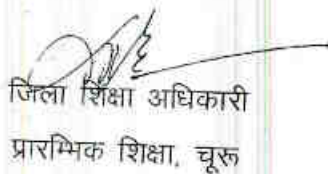 जिला शिक्षा अधिकारी
प्रारम्भिक शिक्षा, चूरू